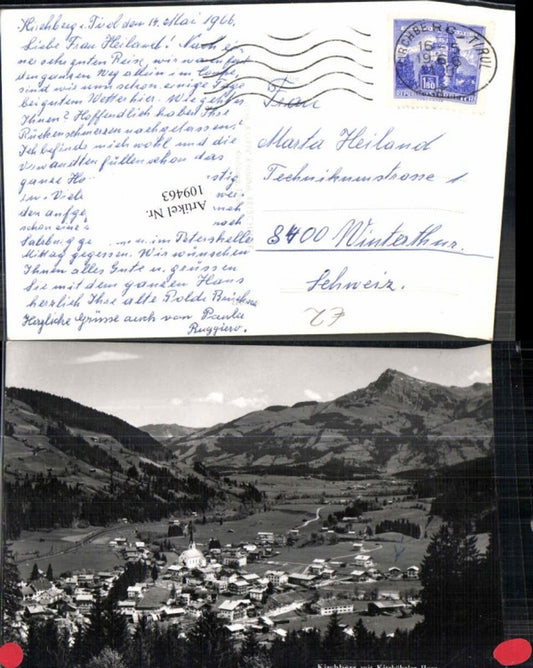 Kirchberg i. Tirol den 14. Mai 1966.
Liebe Frau Heiland! Nach ei-
ner sehr guten Reise, wir waren fast
den ganzen Weg allein im Coupé,
sind wir nun schon einige Tage
bei gutem Wetter hier. Wie geht es
Ihnen? Hoffentlich haben Ihre
Rückenschmerzen nachgelassen.
Ich befinde mich wohl und die
Verwandten füllen schon das
ganze
Viele
den aufge
schon eine
Salzburg u. im Peterskeller
Mittag gegessen. Wir wünschen
Ihnen alles Gute u. grüssen
Sie mit dem ganzen Haus
herzlich Ihre alte Poldi
Herzliche Grüsse auch von Paula
Ruggiero.
Artikel Nr
109463
KIRCHBERG - TIROL
1966
1.80
REPUBLIK ÖSTERREICH
Frau
Marta Heiland
Technikumstrasse 1
8400 Winterthur.
Schweiz.
Kirchberg mit Kitzbüheler Horn